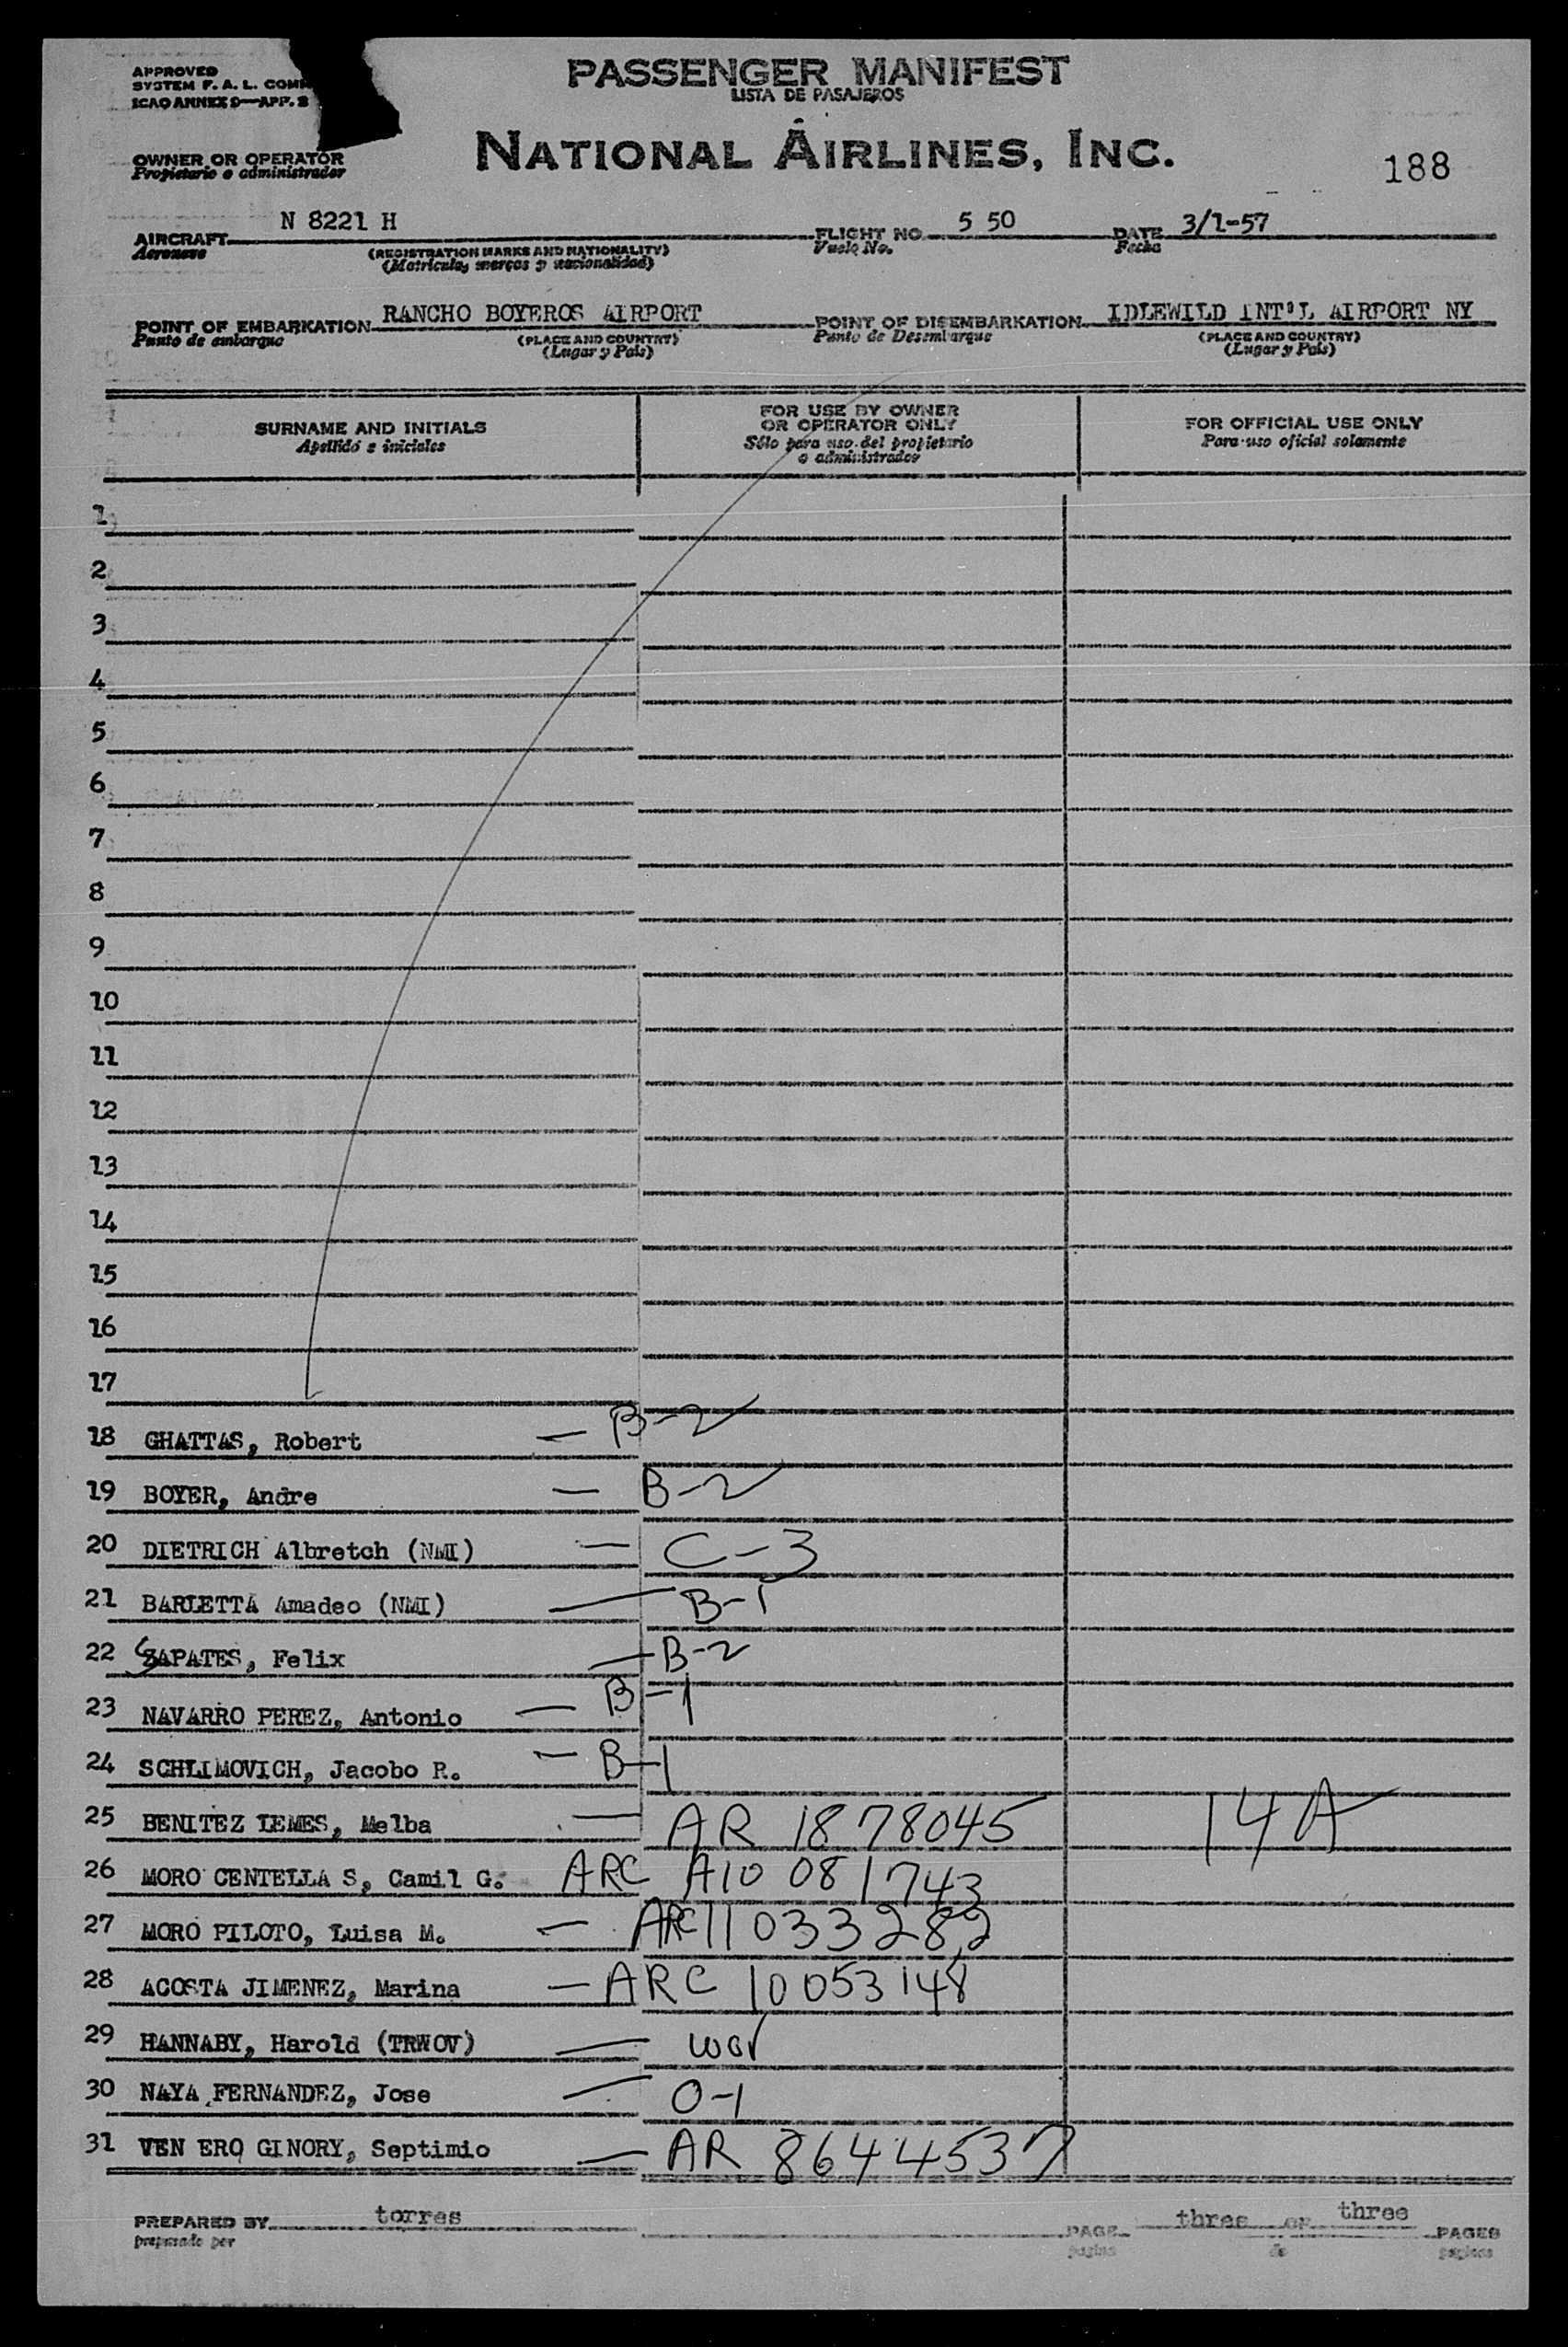 APPROVED
SYSTEM F. A. L. COM
ICAO ANNEX 9—APP. 2
PASSENGER MANIFEST
LISTA DE PASAJEROS
NATIONAL AIRLINES, INC.
188
OWNER OR OPERATOR
Propietario o administrador
AIRCRAFT N 8221 H FLIGHT NO. 5 50 DATE 3/1-57
Aeronave (REGISTRATION MARKS AND NATIONALITY) Vuelo No. Fecha
(Matricula, marcas y nacionalidad)
POINT OF EMBARKATION RANCHO BOYEROS AIRPORT POINT OF DISEMBARKATION IDLEWILD INT'L AIRPORT NY
Punto de embarque (PLACE AND COUNTRY) Punto de Desembarque (PLACE AND COUNTRY)
(Lugar y País) (Lugar y País)
SURNAME AND INITIALS
Apellido e iniciales
FOR USE BY OWNER
OR OPERATOR ONLY
Sólo para uso del propietario
o administrador
FOR OFFICIAL USE ONLY
Para uso oficial solamente
1
2
3
4
5
6
7
8
9
10
11
12
13
14
15
16
17
18 GHATTAS, Robert — B-2
19 BOYER, Andre — B-2
20 DIETRICH Albretch (NMI) — C-3
21 BARLETTA Amadeo (NMI) — B-1
22 ZAPATES, Felix — B-2
23 NAVARRO PEREZ, Antonio — B-1
24 SCHLIMOVICH, Jacobo R. — B-1
25 BENITEZ LEMES, Melba — AR 1878045 14A
26 MORO CENTELLA S, Camil G. ARC A10 081743
27 MORO PILOTO, Luisa M. — ARC 11033282
28 ACOSTA JIMENEZ, Marina — ARC 10053148
29 HANNABY, Harold (TRWOV) — wov
30 NAYA FERNANDEZ, Jose — O-1
31 VEN ERO GINORY, Septimio — AR 8644537
PREPARED BY torres PAGE three OF three PAGES
preparado por pagina de paginas